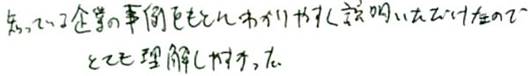 知っている企業の事例をもとにわかりやすく説明いただけたので
とても理解しやすかった。